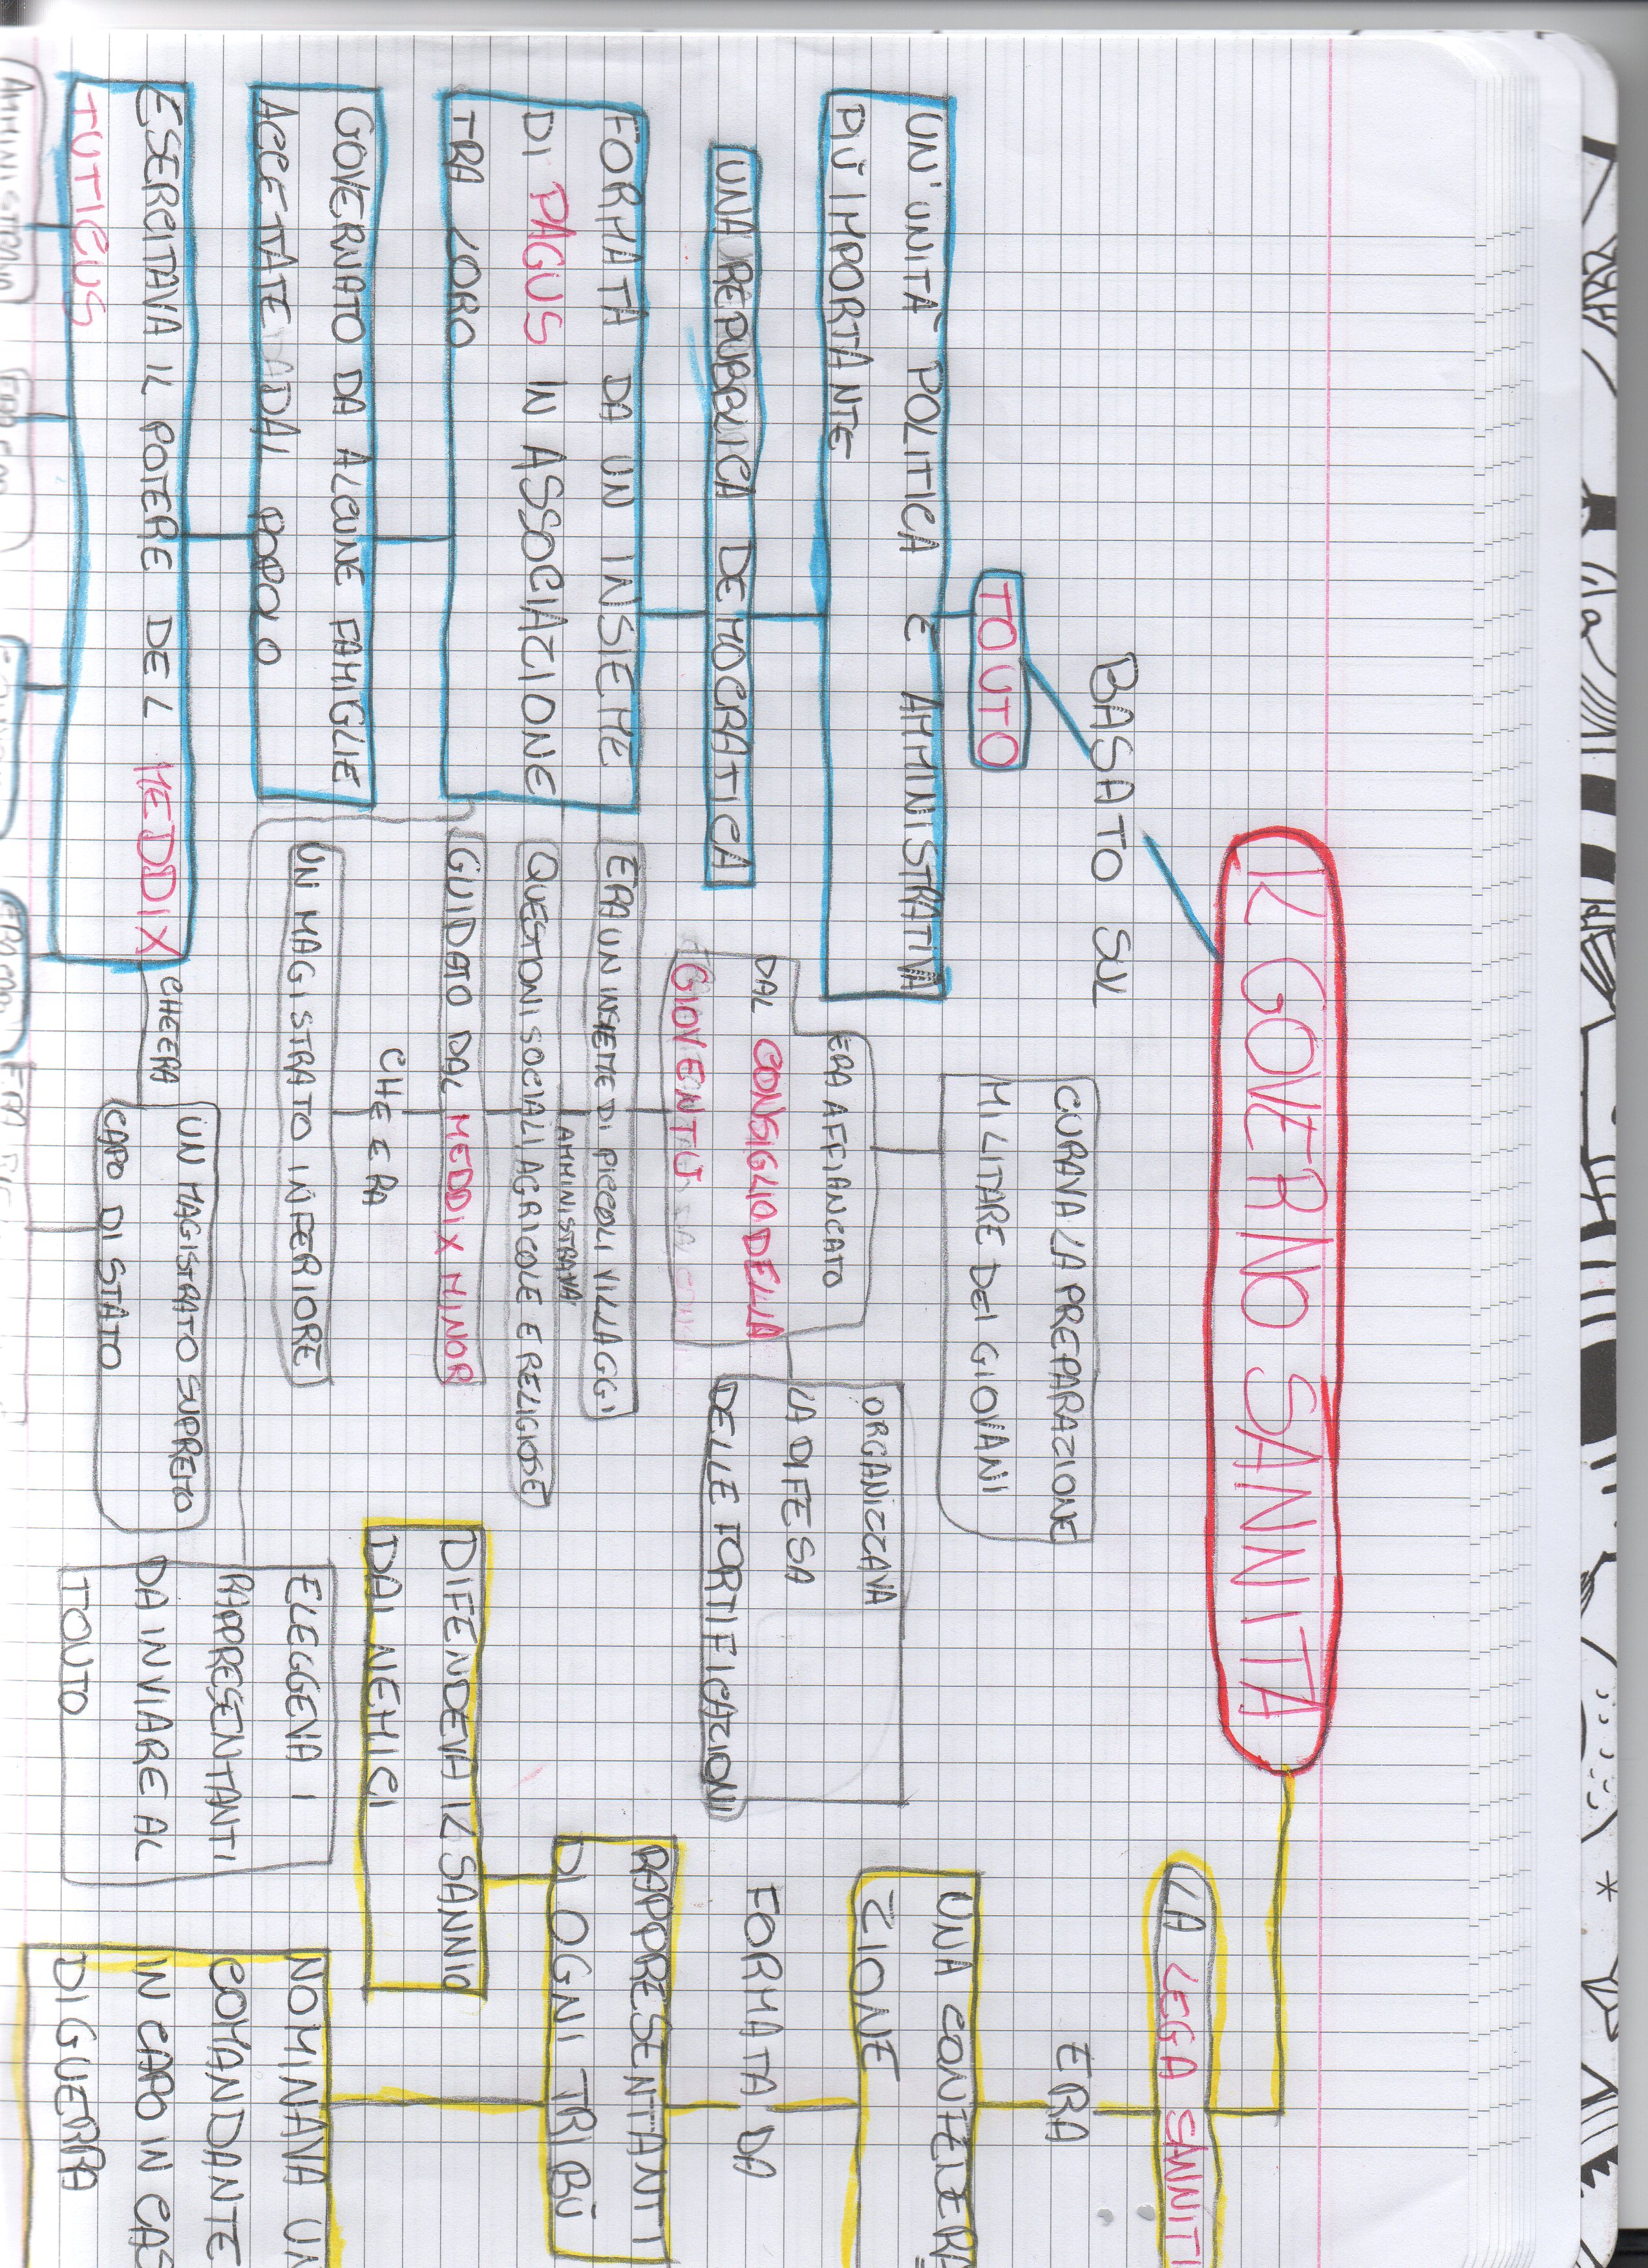 IL GOVERNO SANNITA
BASATO SUL
TOUTO
UN'UNITÀ POLITICA E AMMINISTRATIVA
PIÙ IMPORTANTE
UNA REPUBBLICA DEMOCRATICA
FORMATA DA UN INSIEME
DI PAGUS IN ASSOCIAZIONE
TRA LORO
GOVERNATO DA ALCUNE FAMIGLIE
ACCETTATE DAL POPOLO
ESERCITAVA IL POTERE DEL MEDDIX
TUTICUS
CHE ERA
UN MAGISTRATO SUPREMO
CAPO DI STATO
CURAVA LA PREPARAZIONE
MILITARE DEI GIOVANI
ERA AFFIANCATO
DAL CONSIGLIO DELLA
GIOVENTÙ
ORGANIZZAVA
LA DIFESA
DELLE FORTIFICAZIONI
ERA UN INSIEME DI PICCOLI VILLAGGI
AMMINISTRAVA
QUESTONI SOCIALI AGRICOLE E RELIGIOSE
GUIDATO DAL MEDDIX MINOR
CHE ERA
UN MAGISTRATO INFERIORE
ELEGGEVA I
RAPPRESENTANTI
DA INVIARE AL
TOUTO
LA LEGA SANNITI
ERA
UNA CONFEDERA
ZIONE
FORMATA DA
RAPPRESENTANTI
DI OGNI TRIBÙ
DIFENDEVA IL SANNIO
DAI NEMICI
NOMINAVA UN
COMANDANTE
IN CAPO IN CAS
DI GUERRA
AMMINISTRAVA